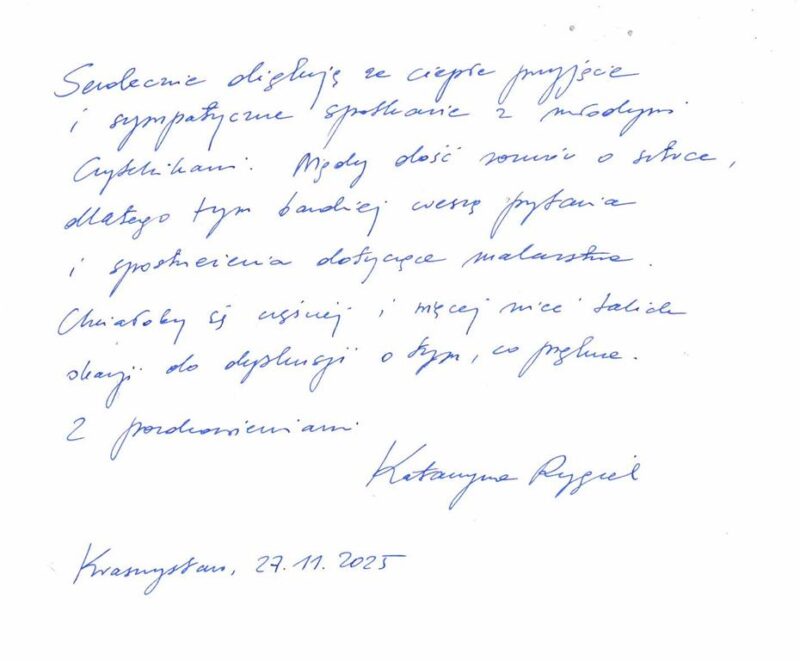 Serdecznie dziękuję za ciepłe przyjęcie
i sympatyczne spotkanie z młodymi
Czytelnikami. Nigdy dość rozmów o sztuce,
dlatego tym bardziej cieszą pytania
i spostrzeżenia dotyczące malarstwa.
Chciałoby się częściej i więcej mieć takich
okazji do dyskusji o tym, co piękne.
Z pozdrowieniami
Katarzyna Rygiel
Krasnystaw, 27.11.2025